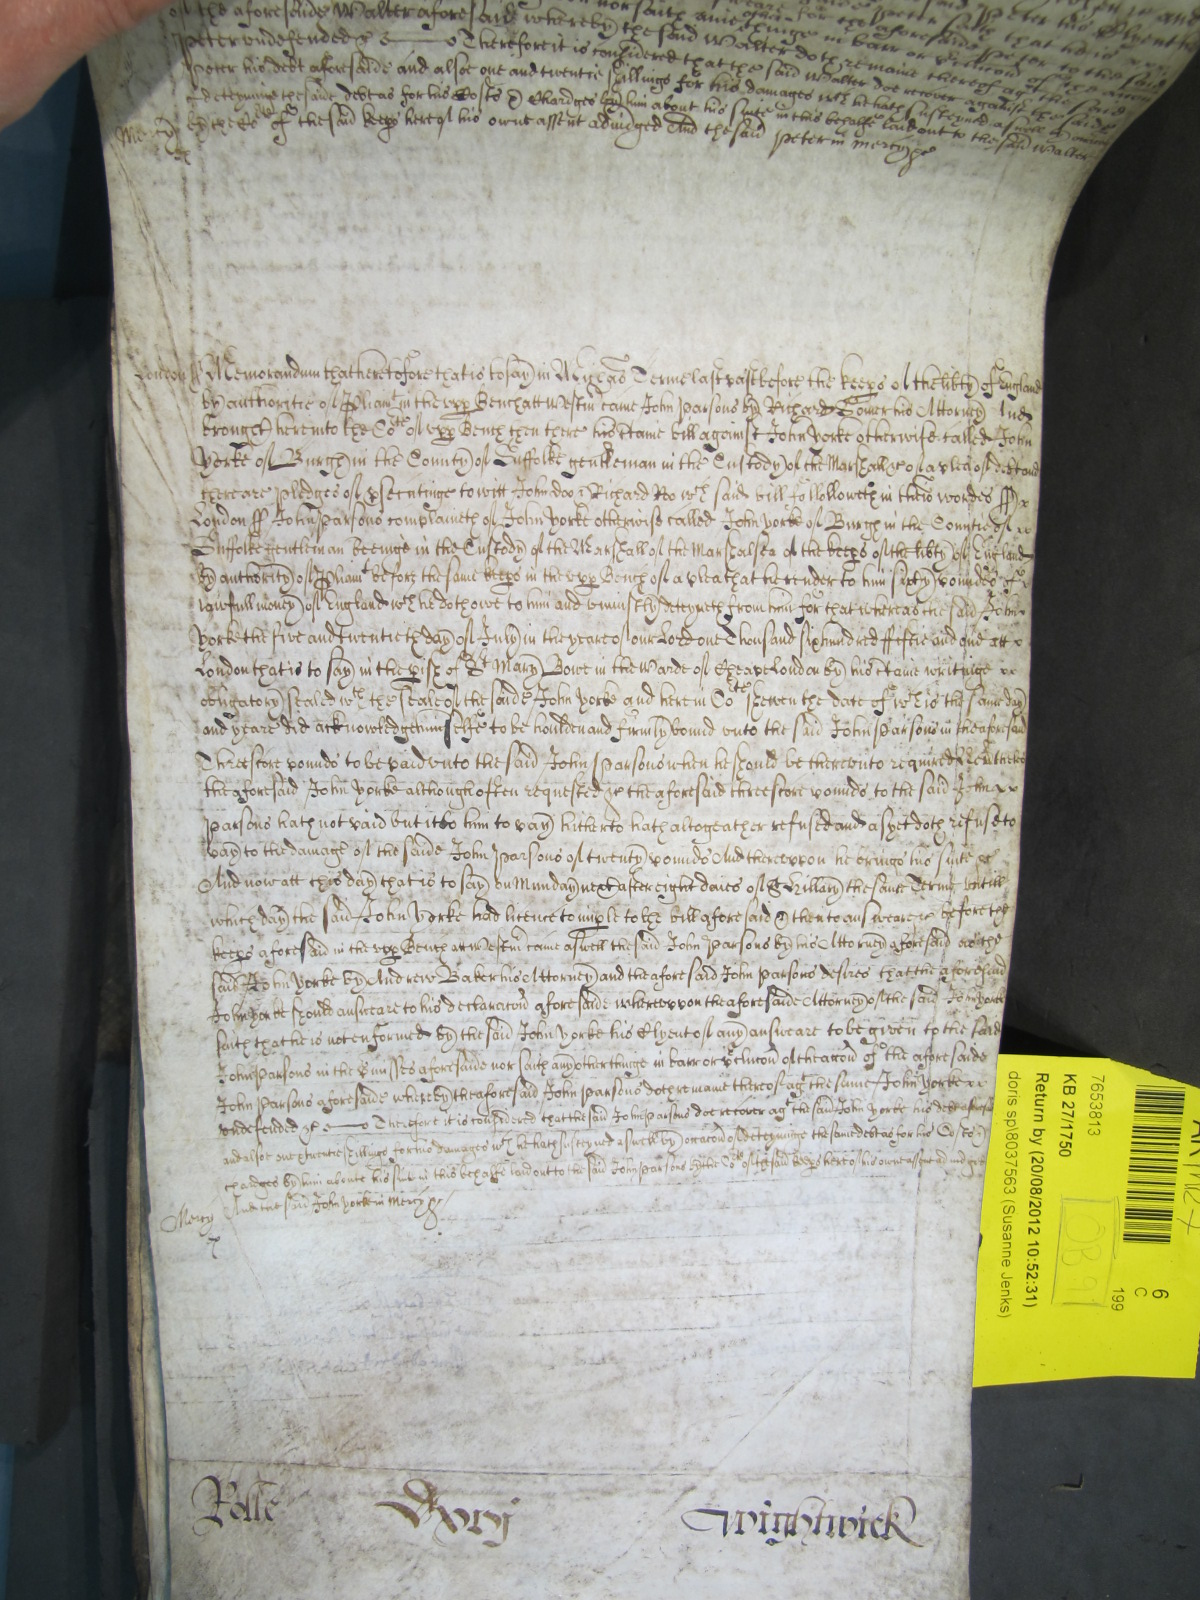 of the aforesaide Walter aforesaid whereby the said Walter doth remaine thereof ag^t the said
Peter undefended &c Therefore it is considered that the said Walter doe recover against the saide
Peter his debt aforesaide and alsoe one and twentie shillings for his damages w^ch he hath susteyned aswell
of deteyninge the saide debt as for his Costs & Chardges by him about his suite in this behalfe laid out to the said Walter
Mercy by the Co^rte of the said keep~s here of his owne assent adiudged And the said Peter in mercy &c
London ss Memorandum that heretofore that is to say in Mychas Terme last past before the keep~s of the lib~ty of England
by authoritie of P~liam^t in the upp~ Bench att Westm~ came John Parsons by Richard Tomer his Attorney And
brought here into the Co^rte of upp~ Bench then there his c~taine bill against John Yorke otherwise called John
Yorke of Burgh in the County of Suffolke gentleman in the Custody of the Marshall &c of a plea of debt and
there are pledges of p~secutinge to witt John Doo & Richard Roo w^ch said bill followeth in theis wordes ss
London ss John Parsons complaineth of John Yorke otherwise called John Yorke of Burgh in the Countie of
Suffolke gentleman beeinge in the Custody of the Marshall of the Marshalsea of the keep~s of the lib~ty of England
by authority of P~liam^t before the same keep~s in the upp~ Bench of a plea that he render to him sixty pounds of
lawfull money of England w^ch he doth owe to him and uniustly deteyneth from him for that whereas the said John
Yorke the five and twentieth day of July in the yeare of our Lord one Thousand six hundred fiftie and one att
London that is to say in the p~ish of S^t Mary Bowe in the Warde of Cheape London by his c~taine writinge
obligatory sealed w^th the seale of the saide John Yorke and here in Co^rte shewen the date of w^ch is the same day
and yeare did acknowledge himselfe to be houlden and firmly bound unto the said John Parsons in the aforesaid
Threescore pounds to be paid unto the said John Parsons when he should be thereunto required Neverthelesse
the aforesaid John Yorke although often requested &c the aforesaid threescore pounds to the said John
Parsons hath not paid but itt to him to pay hitherto hath altogeather refused and as yet doth refuse to
pay to the damage of the saide John Parsons of twenty pounds And thereuppon he brings his suite &c
And now att this day that is to say on Munday next after eight daies of S^t Hillary the same Terme untill
which day the said John Yorke had licence to imp~le to the bill aforesaid & then to answeare &c before the
keep~s aforesaid in the upp~ Bench att Westm~ came aswell the said John Parsons by his Attorney aforesaid as the
said John Yorke by Andrew Baker his Attorney and the aforesaid John Parsons desires that the aforesaid
John Yorke should answeare to his declarac~on aforesaide whereuppon the aforesaide Attorney of the said John Yorke
saith that he is not enformed by the said John Yorke his Clyent of any answeare to be given to the said
John Parsons in the p~misses aforesaide nor saith any other thinge in barr or p~clucon of the acc~on of the aforesaide
John Parsons aforesaide whereby the aforesaid John Parsons doth remaine thereof ag^t the same John Yorke
undefended &c Therefore it is considered that the said John Parsons doe recover ag^t the said John Yorke his debt aforesaid
and alsoe one & twentie shillings for his damages w^ch he hath susteyned aswell by occac~on of deteyninge the same debt as for his Costs &
chardges by him aboute his suite in this behalfe laid out to the said John Parsons by the Co^rte of the said keep~s here of his owne assent adiudged
Mercy And the said John Yorke in Mercy &c
Rolle Dxvj Wightwick
7653813
KB 27/1750
Return by (20/08/2012 10:52:31)
doris sp\8037563 (Susanne Jenks)
6
C
199